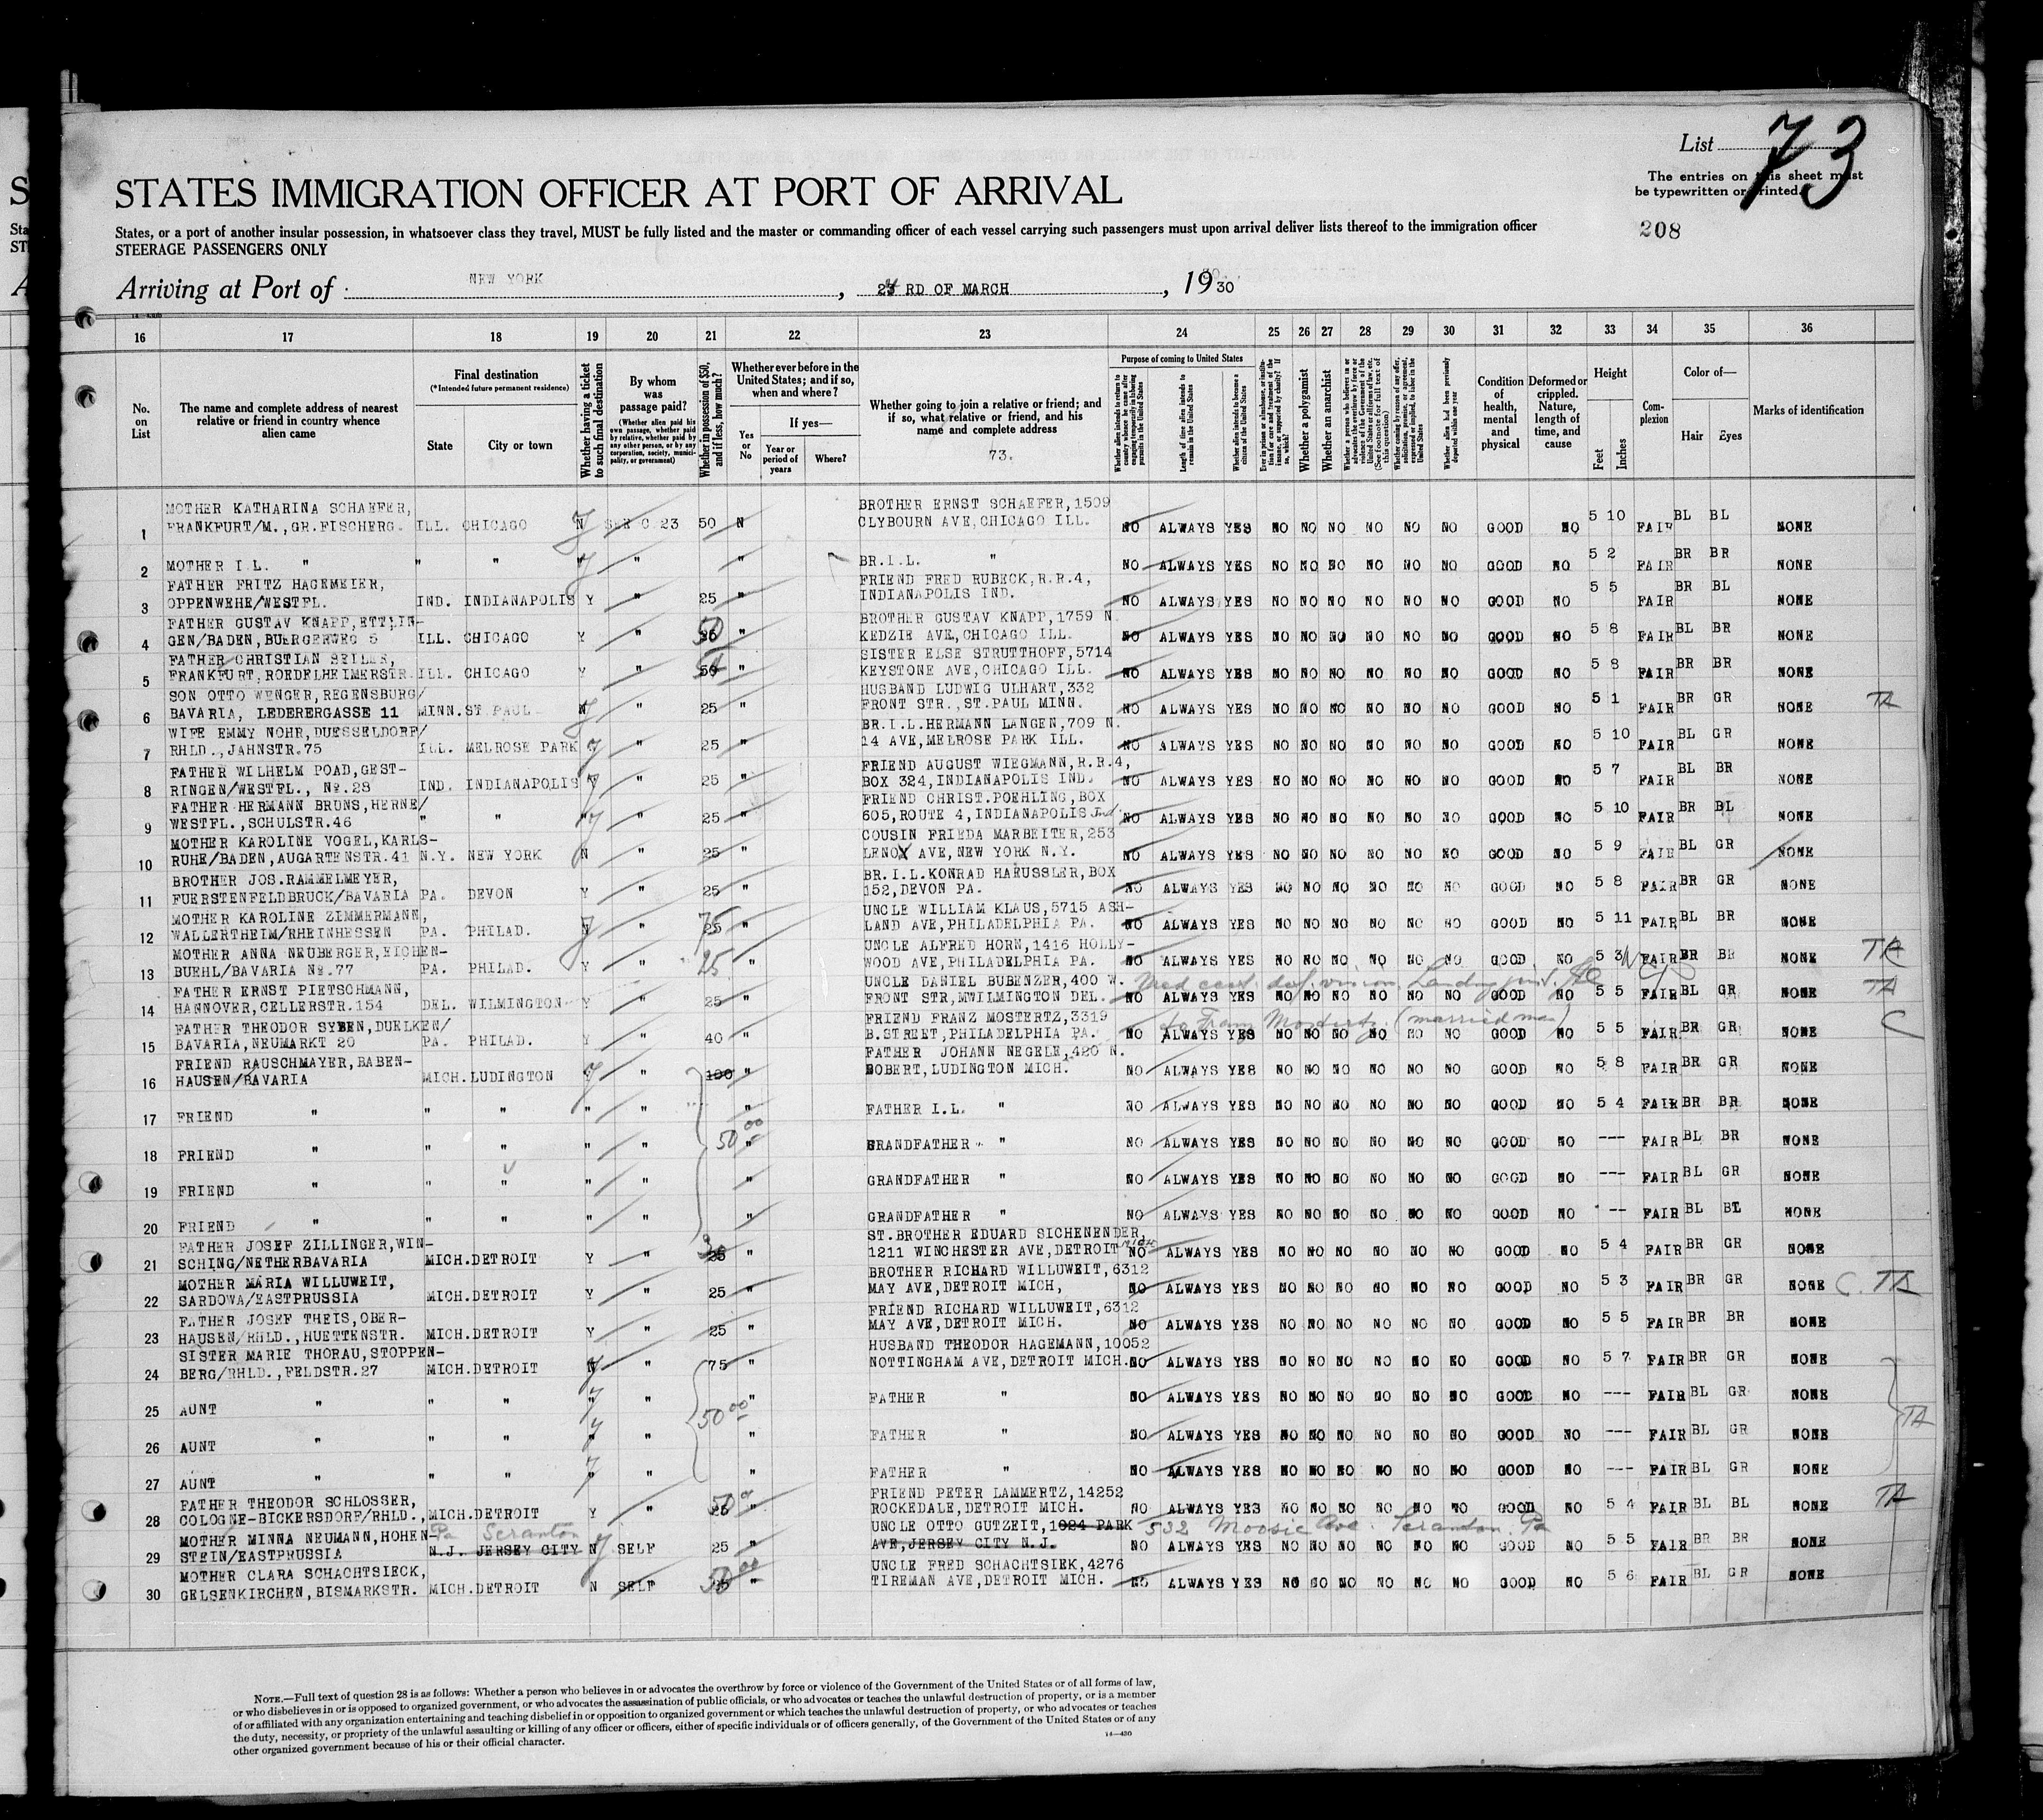 List 73
The entries on this sheet must
be typewritten or printed.
208
STATES IMMIGRATION OFFICER AT PORT OF ARRIVAL
States, or a port of another insular possession, in whatsoever class they travel, MUST be fully listed and the master or commanding officer of each vessel carrying such passengers must upon arrival deliver lists thereof to the immigration officer
STEERAGE PASSENGERS ONLY
Arriving at Port of NEW YORK, 24 RD OF MARCH, 1930
16 17 18 19 20 21 22 23 24 25 26 27 28 29 30 31 32 33 34 35 36
No. on List
The name and complete address of nearest relative or friend in country whence alien came
Final destination
(*Intended future permanent residence)
State
City or town
Whether having a ticket to such final destination
By whom was passage paid?
(Whether alien paid his own passage, whether paid by relative, whether paid by any other person, or by any corporation, society, municipality, or government)
Whether in possession of $50, and if less, how much?
Whether ever before in the United States; and if so, when and where?
Yes or No
If yes—
Year or period of years
Where?
Whether going to join a relative or friend; and if so, what relative or friend, and his name and complete address
73.
Purpose of coming to United States
Length of time alien intends to remain in the United States
Whether alien intends to become a citizen of the United States
Whether a polygamist
Whether an anarchist
Condition of health, mental and physical
Deformed or crippled. Nature, length of time, and cause
Height
Feet
Inches
Complexion
Color of—
Hair
Eyes
Marks of identification
1 MOTHER KATHARINA SCHAEFER, FRANKFURT/M., GR.FISCHERG. ILL. CHICAGO N SEE C 23 50 N BROTHER ERNST SCHAEFER, 1509 CLYBOURN AVE, CHICAGO ILL. NO ALWAYS YES NO NO NO NO NO NO GOOD NO 5 10 FAIR BL BL NONE
2 MOTHER I.L. " " " " " " BR.I.L. " NO ALWAYS YES NO NO NO NO NO NO GOOD NO 5 2 FAIR BR BR NONE
3 FATHER FRITZ HAGEMEIER, OPPENWEHE/WESTFL. IND. INDIANAPOLIS Y " 25 " FRIEND FRED RUBECK, R.R.4, INDIANAPOLIS IND. NO ALWAYS YES NO NO NO NO NO NO GOOD NO 5 5 FAIR BR BL NONE
4 FATHER GUSTAV KNAPP, ETTLINGEN/BADEN, BUERGERWEG 5 ILL. CHICAGO Y " 50 " BROTHER GUSTAV KNAPP, 1759 N. KEDZIE AVE, CHICAGO ILL. NO ALWAYS YES NO NO NO NO NO NO GOOD NO 5 8 FAIR BL BR NONE
5 FATHER CHRISTIAN SEILER, FRANKFURT, ROEDELHEIMERSTR. ILL. CHICAGO Y " 50 " SISTER ELSE STRUTTHOFF, 5714 KEYSTONE AVE, CHICAGO ILL. NO ALWAYS YES NO NO NO NO NO NO GOOD NO 5 8 FAIR BR BR NONE
6 SON OTTO WENGER, REGENSBURG/ BAVARIA, LEDERERGASSE 11 MINN. ST PAUL N " 25 " HUSBAND LUDWIG ULHART, 332 FRONT STR., ST.PAUL MINN. NO ALWAYS YES NO NO NO NO NO NO GOOD NO 5 1 FAIR BR GR NONE TA
7 WIFE EMMY NOHR, DUESSELDORF/ RHLD., JAHNSTR.75 ILL. MELROSE PARK Y " 25 " BR.I.L.HERMANN LANGEN, 709 N. 14 AVE, MELROSE PARK ILL. NO ALWAYS YES NO NO NO NO NO NO GOOD NO 5 10 FAIR BL GR NONE
8 FATHER WILHELM POAD, GEST- RINGEN/WESTFL., No.28 IND. INDIANAPOLIS Y " 25 " FRIEND AUGUST WIEGMANN, R.R.4, BOX 324, INDIANAPOLIS IND. NO ALWAYS YES NO NO NO NO NO NO GOOD NO 5 7 FAIR BL BR NONE
9 FATHER HERMANN BRUNS, HERNE/ WESTFL., SCHULSTR.46 " " " " 25 " FRIEND CHRIST.POEHLING, BOX 605, ROUTE 4, INDIANAPOLIS Ind. NO ALWAYS YES NO NO NO NO NO NO GOOD NO 5 10 FAIR BR BL NONE
10 MOTHER KAROLINE VOGEL, KARLS- RUHE/BADEN, AUGARTENSTR.41 N.Y. NEW YORK N " 25 " COUSIN FRIEDA MARBEITER, 253 LENOX AVE, NEW YORK N.Y. NO ALWAYS YES NO NO NO NO NO NO GOOD NO 5 9 FAIR BL GR NONE
11 BROTHER JOS.RAMMELMEYER, FUERSTENFELDBRUCK/BAVARIA PA. DEVON Y " 25 " BR.I.L.KONRAD HAEUSSLER, BOX 152, DEVON PA. NO ALWAYS YES NO NO NO NO NO NO GOOD NO 5 8 FAIR BR GR NONE
12 MOTHER KAROLINE ZIMMERMANN, WALLERTHEIM/RHEINHESSEN PA. PHILAD. Y " 75 " UNCLE WILLIAM KLAUS, 5715 ASH- LAND AVE, PHILADELPHIA PA. NO ALWAYS YES NO NO NO NO NO NO GOOD NO 5 11 FAIR BL BR NONE
13 MOTHER ANNA NEUBERGER, EICHEN- BUEHL/BAVARIA No.77 PA. PHILAD. Y " 25 " UNCLE ALFRED HORN, 1416 HOLLY- WOOD AVE, PHILADELPHIA PA. NO ALWAYS YES NO NO NO NO NO NO GOOD NO 5 3 FAIR BR BR NONE TA
14 FATHER ERNST PIETSCHMANN, HANNOVER, CELLERSTR.154 DEL. WILMINGTON Y " 25 " UNCLE DANIEL BUBENZER, 400 W. FRONT STR, MWILMINGTON DEL. NO ALWAYS YES NO NO NO NO NO NO GOOD NO 5 5 FAIR BL GR NONE TA
15 FATHER THEODOR SYBEN, DUELKEN/ BAVARIA, NEUMARKT 20 PA. PHILAD. Y " 40 " FRIEND FRANZ MOSTERTZ, 3319 B.STREET, PHILADELPHIA PA. to Franz Mostertz (married man) NO ALWAYS YES NO NO NO NO NO NO GOOD NO 5 5 FAIR BR GR NONE C
16 FRIEND RAUSCHMAYER, BABEN- HAUSEN/BAVARIA MICH. LUDINGTON Y " 100 " FATHER JOHANN NEGELE, 420 N. ROBERT, LUDINGTON MICH. NO ALWAYS YES NO NO NO NO NO NO GOOD NO 5 8 FAIR BR GR NONE
17 FRIEND " " " " " " FATHER I.L. " NO ALWAYS YES NO NO NO NO NO NO GOOD NO 5 4 FAIR BR BR NONE
18 FRIEND " " " " " 50 00 " GRANDFATHER " NO ALWAYS YES NO NO NO NO NO NO GOOD NO --- FAIR BL BR NONE
19 FRIEND " " " " " " GRANDFATHER " NO ALWAYS YES NO NO NO NO NO NO GOOD NO --- FAIR BL GR NONE
20 FRIEND " " " " " " GRANDFATHER " NO ALWAYS YES NO NO NO NO NO NO GOOD NO -- FAIR BL BL NONE
21 FATHER JOSEF ZILLINGER, WIN- SCHING/NETHERBAVARIA MICH. DETROIT Y " 25 " ST.BROTHER EDUARD SICHENENDER, 1211 WINCHESTER AVE, DETROIT MICH NO ALWAYS YES NO NO NO NO NO NO GOOD NO 5 4 FAIR BR GR NONE
22 MOTHER MARIA WILLUWEIT, SARDOWA/EASTPRUSSIA MICH. DETROIT Y " 25 " BROTHER RICHARD WILLUWEIT, 6312 MAY AVE, DETROIT MICH, NO ALWAYS YES NO NO NO NO NO NO GOOD NO 5 3 FAIR BR GR NONE C. TA
23 FATHER JOSEF THEIS, OBER- HAUSEN/RHLD., HUETTENSTR. MICH. DETROIT Y " 25 " FRIEND RICHARD WILLUWEIT, 6312 MAY AVE, DETROIT MICH. NO ALWAYS YES NO NO NO NO NO NO GOOD NO 5 5 FAIR BR BR NONE
24 SISTER MARIE THORAU, STOPPEN- BERG/RHLD., FELDSTR.27 MICH. DETROIT N " 75 " HUSBAND THEODOR HAGEMANN, 10052 NOTTINGHAM AVE, DETROIT MICH. NO ALWAYS YES NO NO NO NO NO NO GOOD NO 5 7 FAIR BR GR NONE
25 AUNT " " " " " 50 00 " FATHER " NO ALWAYS YES NO NO NO NO NO NO GOOD NO --- FAIR BL GR NONE
26 AUNT " " " " " " FATHER " NO ALWAYS YES NO NO NO NO NO NO GOOD NO --- FAIR BL GR NONE TA
27 AUNT " " " " " " FATHER " NO ALWAYS YES NO NO NO NO NO NO GOOD NO --- FAIR BL GR NONE
28 FATHER THEODOR SCHLOSSER, COLOGNE-BICKERSDORF/RHLD., MICH. DETROIT Y " 50 " FRIEND PETER LAMMERTZ, 14252 ROCKEDALE, DETROIT MICH. NO ALWAYS YES NO NO NO NO NO NO GOOD NO 5 4 FAIR BL BL NONE TA
29 MOTHER MINNA NEUMANN, HOHEN- STEIN/EASTPRUSSIA Pa Scranton N.J. JERSEY CITY N SELF 25 " UNCLE OTTO GUTZEIT, 1024 PARK AVE, JERSEY CITY N.J. 532 Moosic Ave. Scranton Pa NO ALWAYS YES NO NO NO NO NO NO GOOD NO 5 5 FAIR BR BR NONE
30 MOTHER CLARA SCHACHTSIECK, GELSENKIRCHEN, BISMARKSTR. MICH. DETROIT N SELF 50 00 " UNCLE FRED SCHACHTSIEK, 4276 TIREMAN AVE, DETROIT MICH. NO ALWAYS YES NO NO NO NO NO NO GOOD NO 5 6 FAIR BL GR NONE
NOTE.—Full text of question 28 is as follows: Whether a person who believes in or advocates the overthrow by force or violence of the Government of the United States or of all forms of law,
or who disbelieves in or is opposed to organized government, or who advocates the assassination of public officials, or who advocates or teaches the unlawful destruction of property, or is a member
of or affiliated with any organization entertaining and teaching disbelief in or opposition to organized government or which teaches the unlawful destruction of property, or who advocates or teaches
the duty, necessity, or propriety of the unlawful assaulting or killing of any officer or officers, either of specific individuals or of officers generally, of the Government of the United States or of any
other organized government because of his or their official character.
14—430